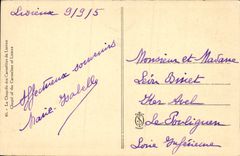 Lisieux 9/9/5
Affectueux souvenirs
Marie-Isabelle
Monsieur et Madame
Léon Binet
Ker Avel
Le Pouliguen
Loire Inférieure
La Chapelle des Carmélites de Lisieux
Chapel of the Carmelites of Lisieux